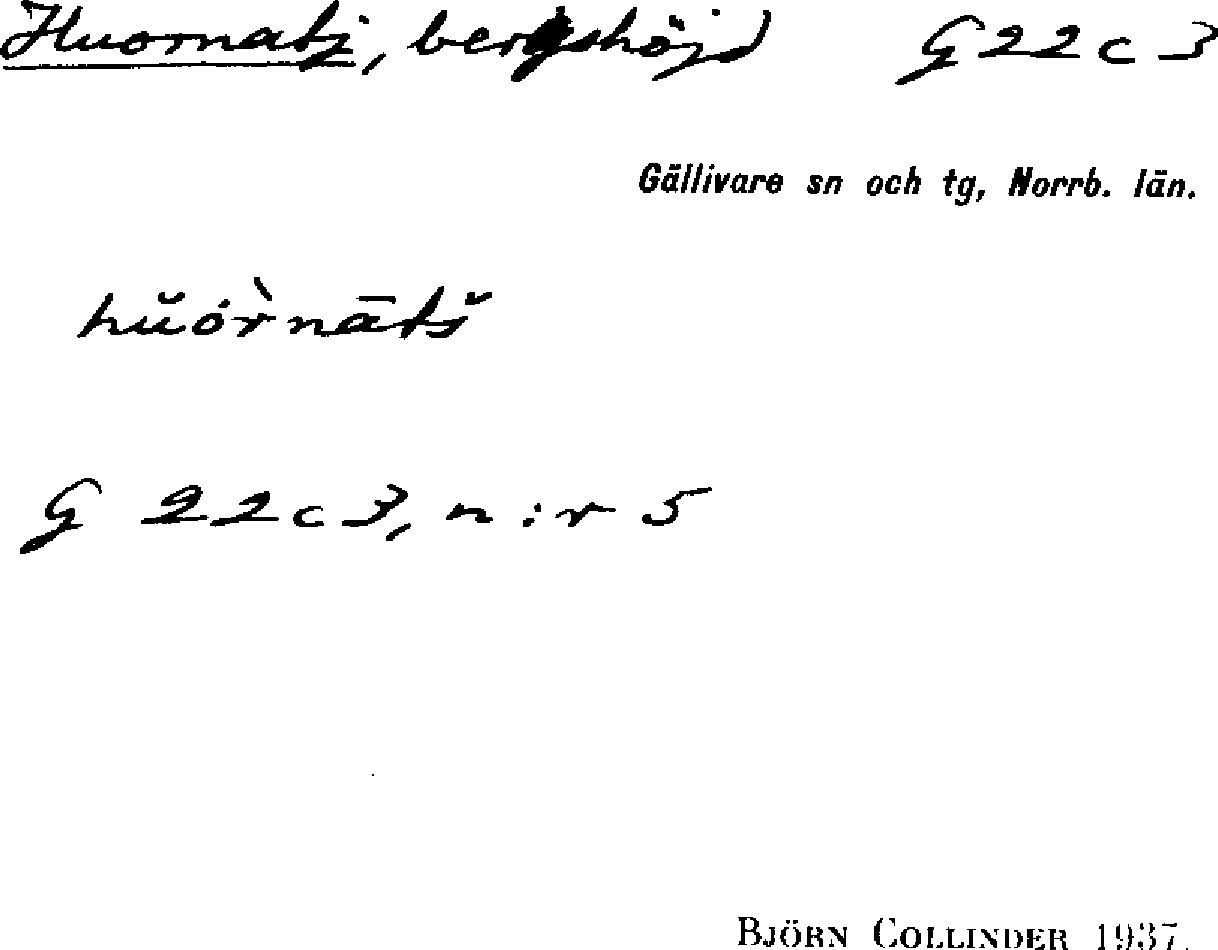 Huornatj, bergshöjd G22c3
Gällivare sn och tg, Norrb. län.
hŭór̀nātš̆
G 22c3, n:r 5
BJÖRN COLLINDER 1937.